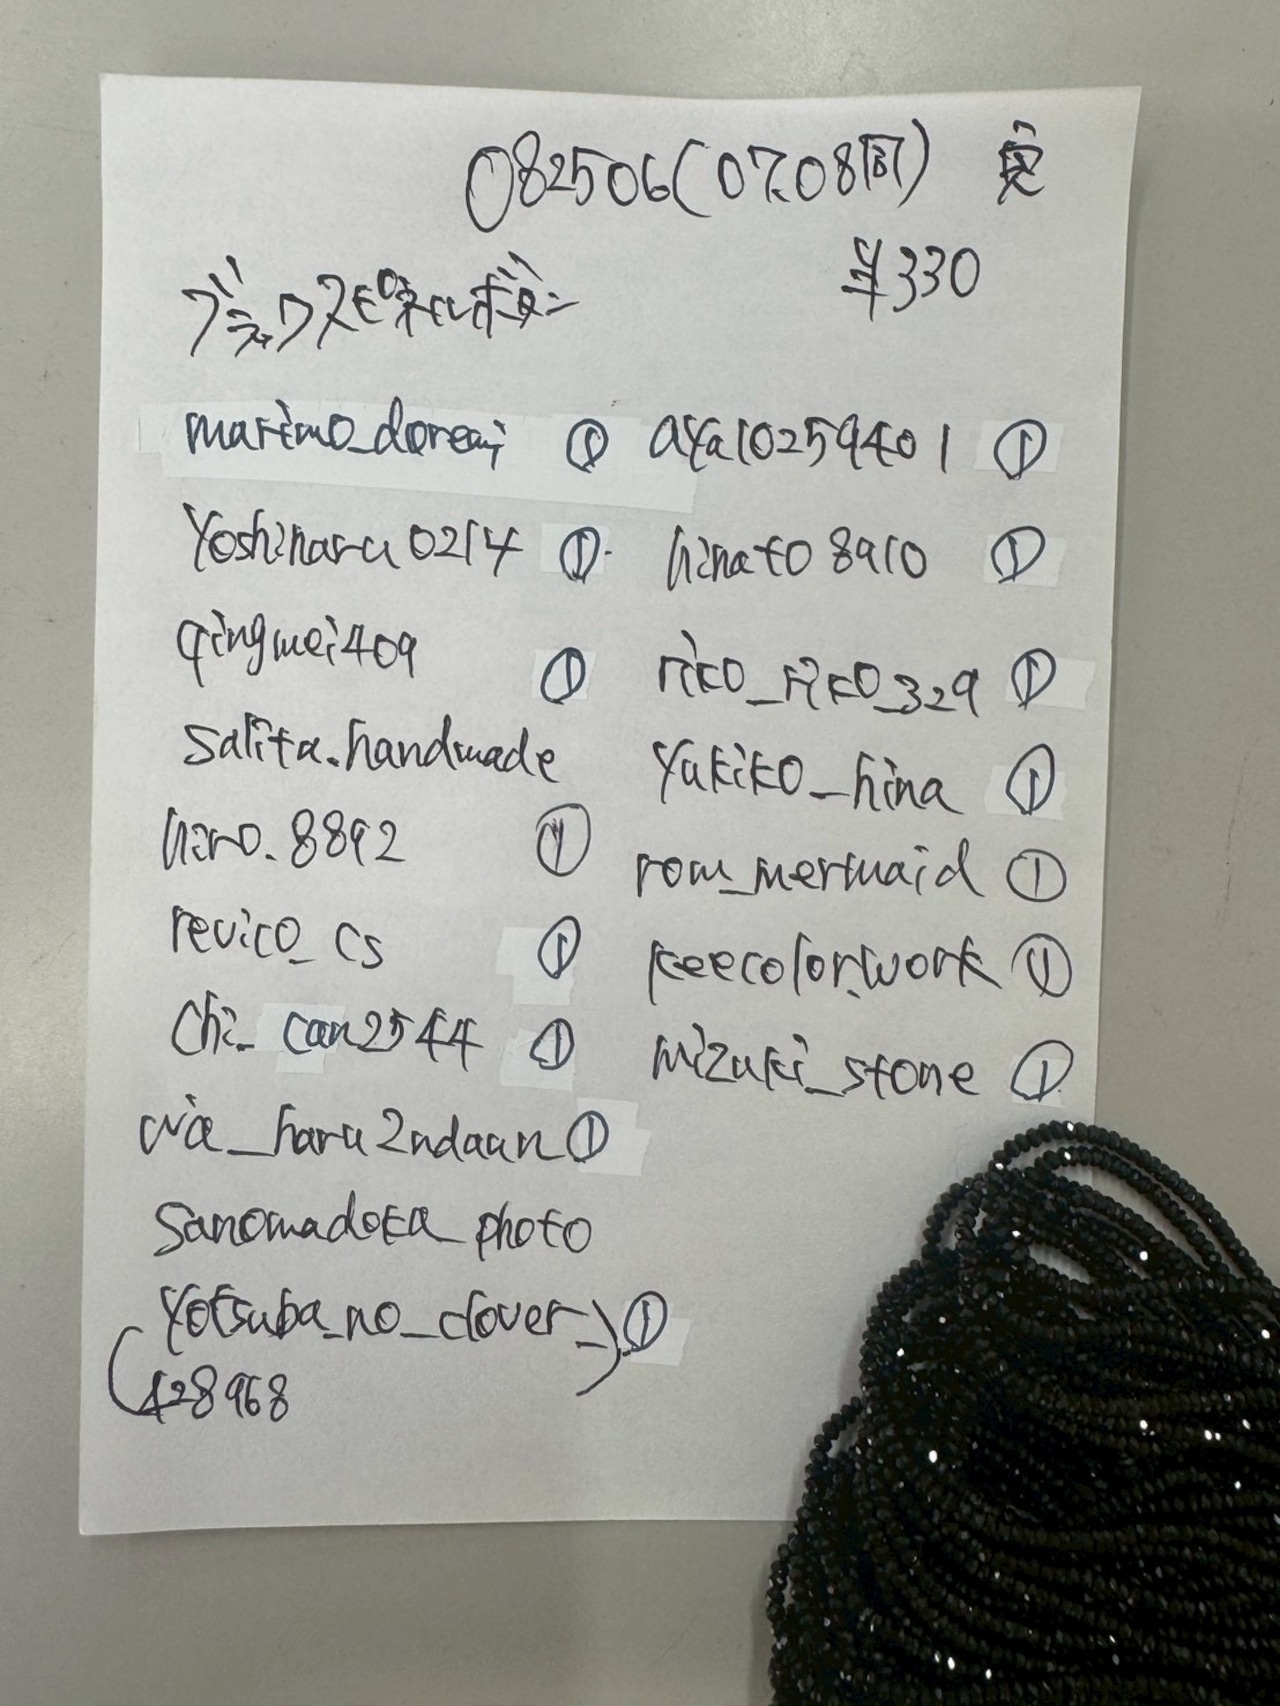 082506(07.08同)
¥330
ブラックスピネルボタン
marimo_doremi ①
Yoshiharu0214 ①
qingmei409 ①
salita.handmade
hiro.8892 ①
revico_cs ①
chi_can2544 ①
via_haru2ndaan ①
sanomadoka_photo
(yotsuba_no_clover_) ①
428968
aya10259401 ①
hinato8910 ①
riko_riko_329 ①
yukiko_hina ①
rom_mermaid ①
keecolor.work ①
mizuki_stone ①